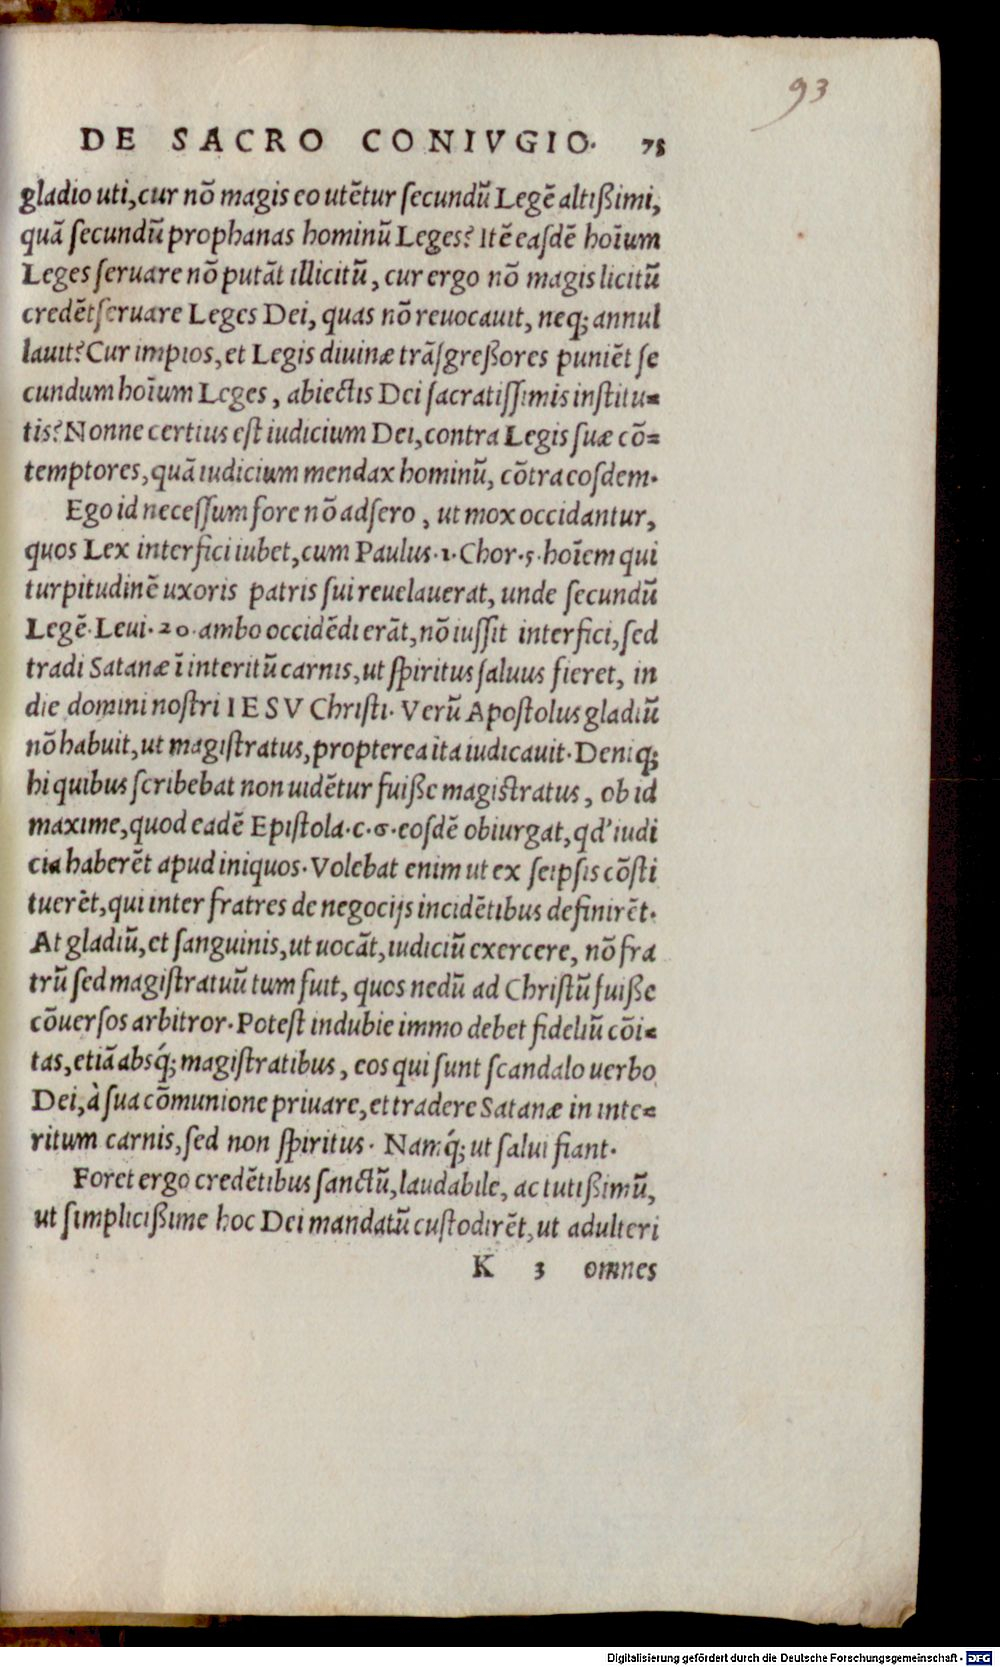 93
DE SACRO CONIVGIO. 78
gladio uti, cur nõ magis eo utẽtur ſecundũ Legẽ altißimi,
quã ſecundũ prophanas hominũ Leges? Itẽ eaſdẽ hoĩum
Leges ſeruare nõ putãt illicitũ, cur ergo nõ magis licitũ
credẽt ſeruare Leges Dei, quas nõ reuocauit, neq; annul
lauit? Cur impios, et Legis diuinæ trãſgreßores puniẽt ſe
cundum hoĩum Leges, abiectis Dei ſacratiſſimis inſtitu=
tis? Nonne certius eſt iudicium Dei, contra Legis ſuæ cõ=
temptores, quã iudicium mendax hominũ, cõtra eoſdem.
Ego id neceſſum fore nõ adſero, ut mox occidantur,
quos Lex interfici iubet, cum Paulus. 1. Chor. 5. hoĩem qui
turpitudinẽ uxoris patris ſui reuelauerat, unde ſecundũ
Legẽ. Leui. 20. ambo occidẽdi erãt, nõ iuſſit interfici, ſed
tradi Satanæ ĩ interitũ carnis, ut ſpiritus ſaluus fieret, in
die domini noſtri IESV Chriſti. Verũ Apoſtolus gladiũ
nõ habuit, ut magiſtratus, propterea ita iudicauit. Deniq;
hi quibus ſcribebat non uidẽtur fuiße magiſtratus, ob id
maxime, quod eadẽ Epiſtola. c. 6. eoſdẽ obiurgat, qd' iudi
cia haberẽt apud iniquos. Volebat enim ut ex ſeipſis cõſti
tuerẽt, qui inter fratres de negocijs incidẽtibus definirẽt.
At gladiũ, et ſanguinis, ut uocãt, iudiciũ exercere, nõ fra
trũ ſed magiſtratuũ tum fuit, quos nedũ ad Chriſtũ fuiße
cõuerſos arbitror. Poteſt indubie immo debet fideliũ cõi=
tas, etiã absq́; magiſtratibus, eos qui ſunt ſcandalo uerbo
Dei, à ſua cõmunione priuare, et tradere Satanæ in inte=
ritum carnis, ſed non ſpiritus. Namq́; ut ſalui fiant.
Foret ergo credẽtibus ſanctũ, laudabile, ac tutißimũ,
ut ſimplicißime hoc Dei mandatũ cuſtodirẽt, ut adulteri
K 3 omnes
Digitalisierung gefördert durch die Deutsche Forschungsgemeinschaft - DFG